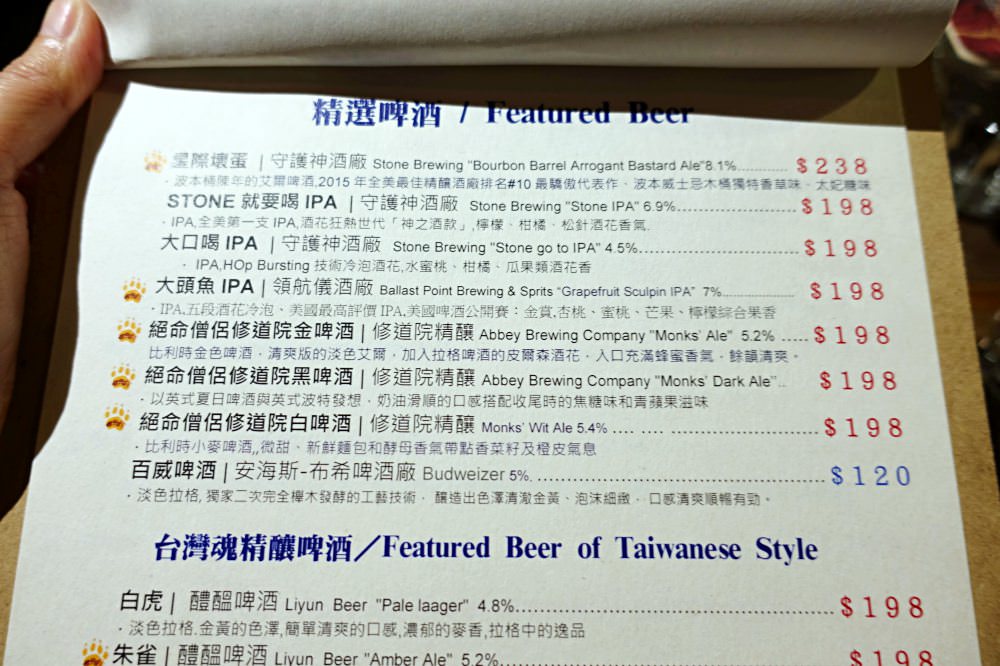 精選啤酒 / Featured Beer
星際壞蛋 | 守護神酒廠 Stone Brewing "Bourbon Barrel Arrogant Bastard Ale"8.1%............. $238
· 波本桶陳年的艾爾啤酒,2015 年全美最佳精釀酒廠排名#10 最驕傲代表作、波本威士忌木桶獨特香草味、太妃糖味
STONE 就要喝 IPA | 守護神酒廠 Stone Brewing "Stone IPA" 6.9%........................ $198
· IPA,全美第一支 IPA,酒花狂熱世代「神之酒款」,檸檬、柑橘、松針酒花香氣.
大口喝 IPA | 守護神酒廠 Stone Brewing "Stone go to IPA" 4.5%................................ $198
· IPA,HOp Bursting 技術冷泡酒花,水蜜桃、柑橘、瓜果類酒花香
大頭魚 IPA | 領航儀酒廠 Ballast Point Brewing & Sprits “Grapefruit Sculpin IPA” 7%.................. $198
· IPA.五段酒花冷泡、美國最高評價 IPA,美國啤酒公開賽：金賞,杏桃、蜜桃、芒果、檸檬綜合果香
絕命僧侶修道院金啤酒 | 修道院精釀 Abbey Brewing Company "Monks’ Ale" 5.2% ..... $198
比利時金色啤酒，清爽版的淡色艾爾，加入拉格啤酒的皮爾森酒花，入口充滿蜂蜜香氣，餘韻清爽。
絕命僧侶修道院黑啤酒 | 修道院精釀 Abbey Brewing Company "Monks’ Dark Ale".. $198
· 以英式夏日啤酒與英式波特發想，奶油滑順的口感搭配收尾時的焦糖味和青蘋果滋味
絕命僧侶修道院白啤酒 | 修道院精釀 Monks’ Wit Ale 5.4% .... .... ................................ $198
· 比利時小麥啤酒,,微甜、新鮮麵包和酵母香氣帶點香菜籽及橙皮氣息
百威啤酒 | 安海斯-布希啤酒廠 Budweizer 5%. ...................................................... $120
· 淡色拉格, 獨家二次完全櫸木發酵的工藝技術， 釀造出色澤清澈金黃、泡沫細緻，口感清爽順暢有勁。
台灣魂精釀啤酒／Featured Beer of Taiwanese Style
白虎 | 醴醞啤酒 Liyun Beer "Pale laager" 4.8%.......................................................... $198
· 淡色拉格.金黃的色澤,簡單清爽的口感,濃郁的麥香,拉格中的逸品
朱雀 | 醴醞啤酒 Liyun Beer "Amber Ale" 5.2%.......................................................... $198